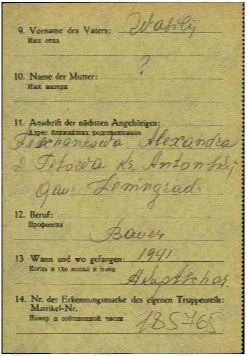 9. Vorname des Vaters: Wasilij
Имя отца
10. Name der Mutter: ?
Имя матери
11. Anschrift der nächsten Angehörigen:
Адрес ближайших родственников
Alexandra
D Titowa Kr. Antonskij
Gau: Leningrad
12. Beruf:
Профессия
Bauer
13 Wann und wo gefangen: 1941
Когда и где попал в плен
14. Nr. der Erkennungsmarke des eigenen Truppenteils:
Matrikel-Nr.
Номер в собственной части
185765